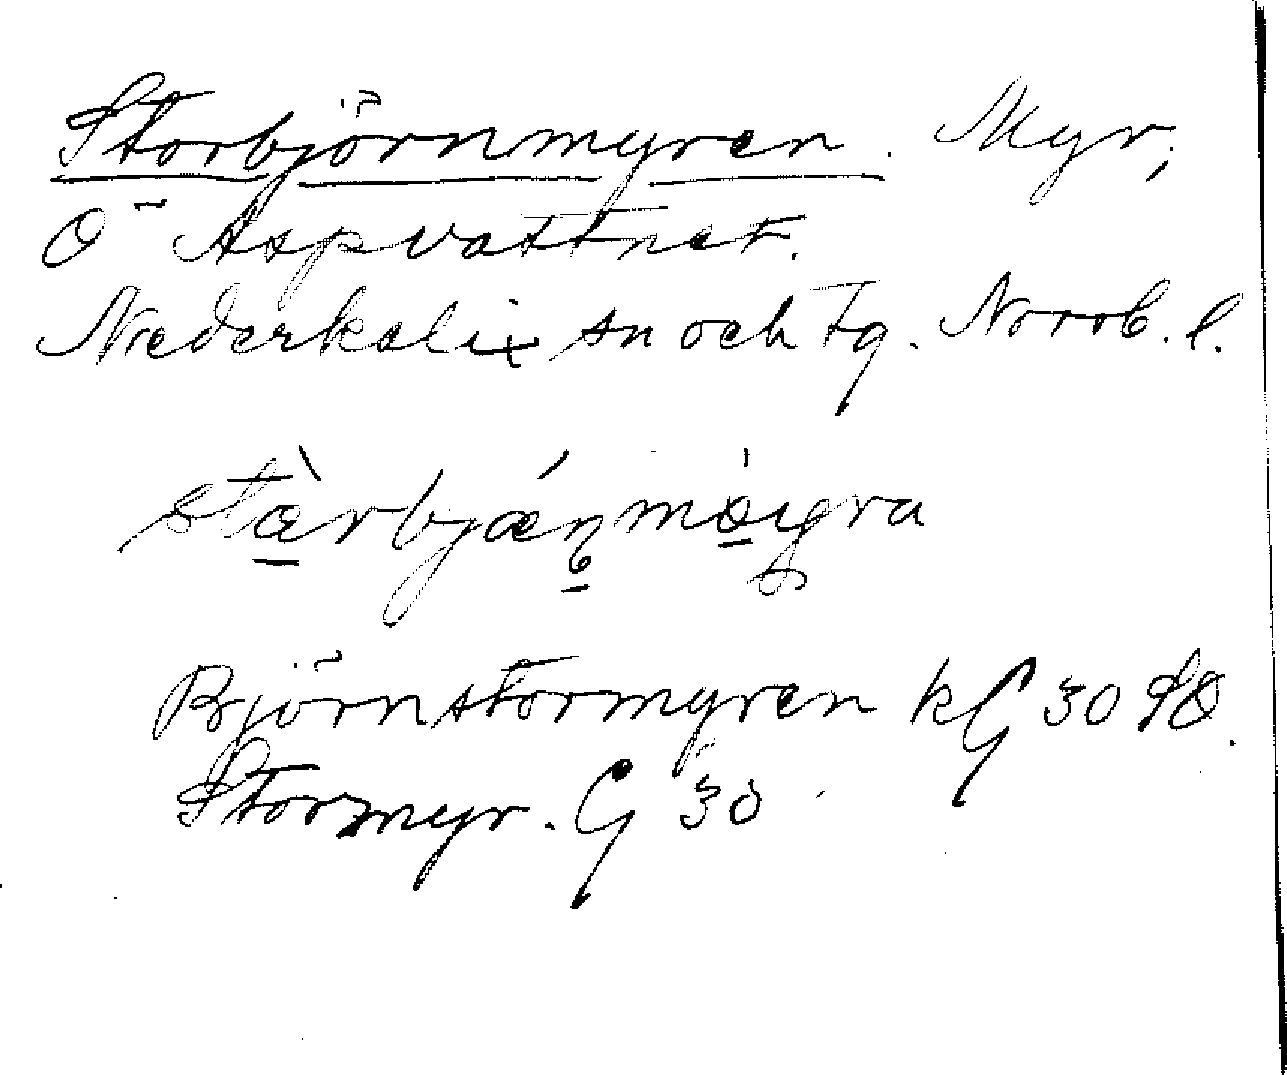 Storbjörnmyren. Myr,
Ö Aspvattnet.
Nederkalix sn och tg. Norrb. l.
stæ̀rbjǽn̥mòyra
Björnstormyren kG 30 SO.
Stormyr. G 30